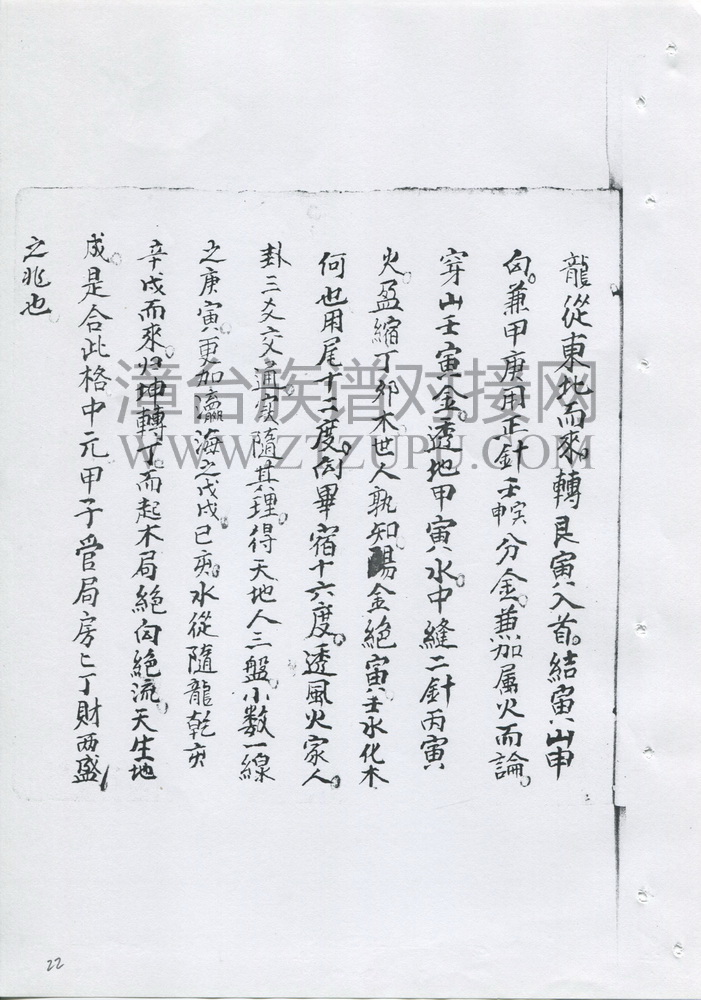 龍從東北而來。轉艮寅入首。結寅山申
向。兼甲庚用正針壬寅壬申分金。兼加属火而論。
穿山壬寅金。透地甲寅水。中縫二針丙寅
火。盈縮丁卯木世人孰知陽金絕寅壬水化木
何也用尾十二度。向畢宿十六度。透風火家人。
卦三爻六交通實隨其理。得天地人三盤。小数一線
之庚寅。更加瀛海之戊戌己亥。水從隨龍乾亥
辛戌而來。归坤轉丁。而起木局絕向絕流。天生地
成。是合此格中元甲子管局房亡丁財両盛
之兆也
漳台族谱对接网
WWW.ZTZUPU.COM
22